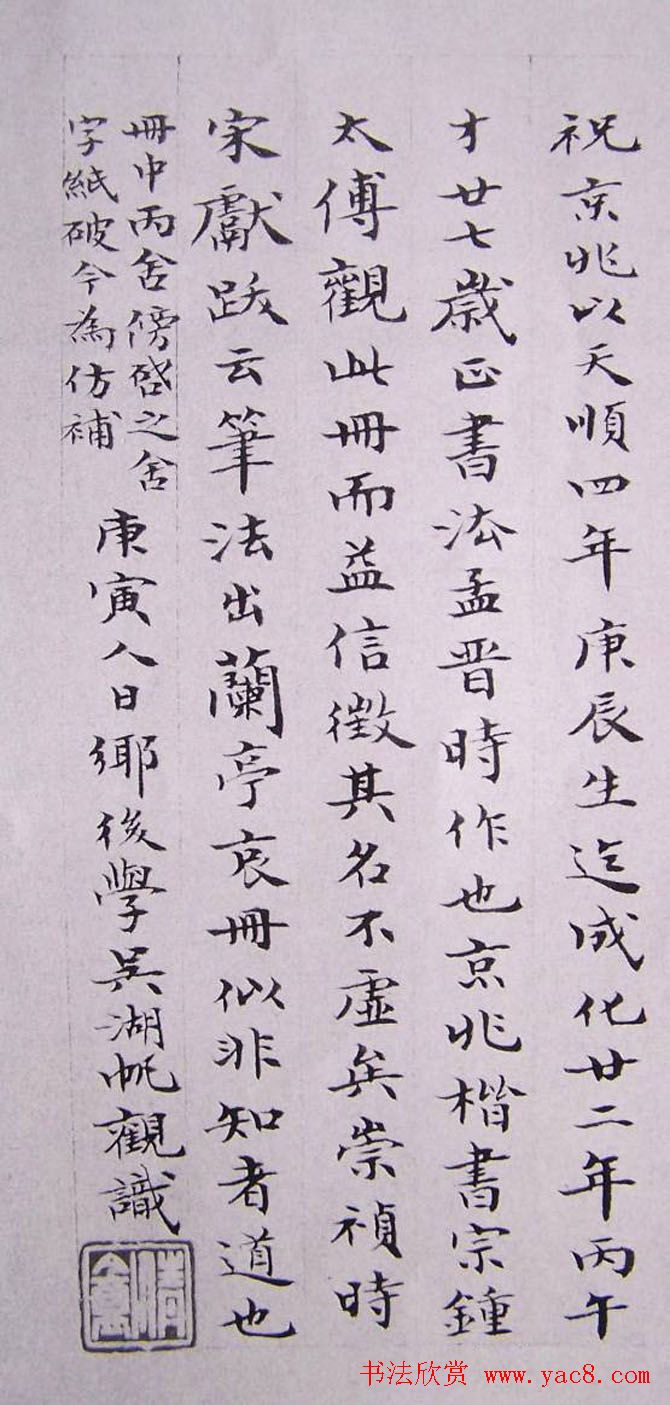 祝京兆以天順四年庚辰生迄成化廿二年丙午
才廿七歲正書法孟晋時作也京兆楷書宗鍾
太傅觀此冊而益信徵其名不虛矣崇禎時
宋獻跋云筆法出蘭亭哀冊似非知者道也
冊中丙舍傍啓之舍
字紙破今為仿補
庚寅人日鄉後學吳湖帆觀識
书法欣赏 www.yac8.com